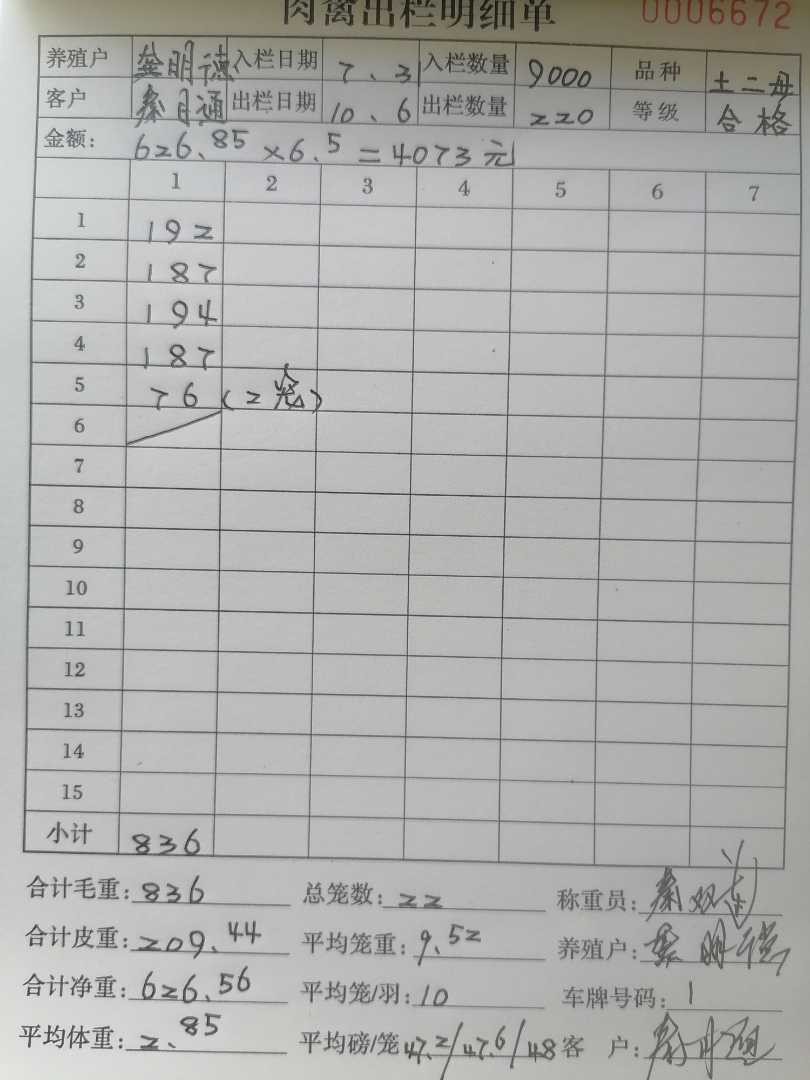 肉禽出栏明细单 0006672
养殖户 龚明德 入栏日期 7、31 入栏数量 9000 品种 土二母
客户 秦月通 出栏日期 10、6 出栏数量 220 等级 合格
金额: 626.85×6.5=4073元
1 2 3 4 5 6 7
1 192
2 187
3 194
4 187
5 76(2笼)
6
7
8
9
10
11
12
13
14
15
小计 836
合计毛重: 836 总笼数: 22 称重员:
合计皮重: 209.44 平均笼重: 9.52 养殖户:
合计净重: 626.56 平均笼/羽: 10 车牌号码: 1
平均体重: 2.85 平均磅/笼 47.2/47.6/48 客 户: